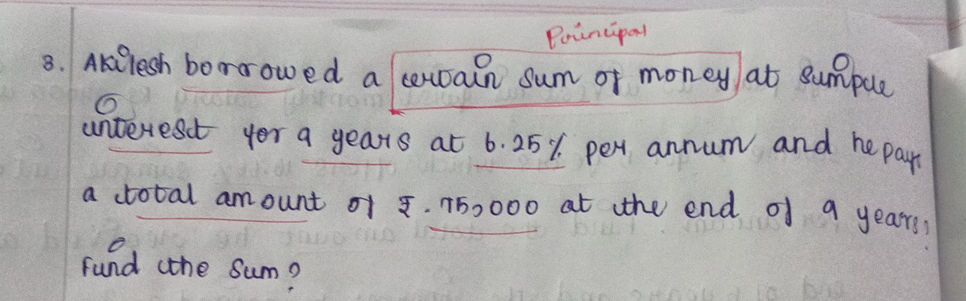 Principal
3. Akilesh borrowed a certain sum of money at simple
interest for 9 years at 6.25% per annum and he pays
a total amount of ₹.75,000 at the end of 9 years,
Find the sum?